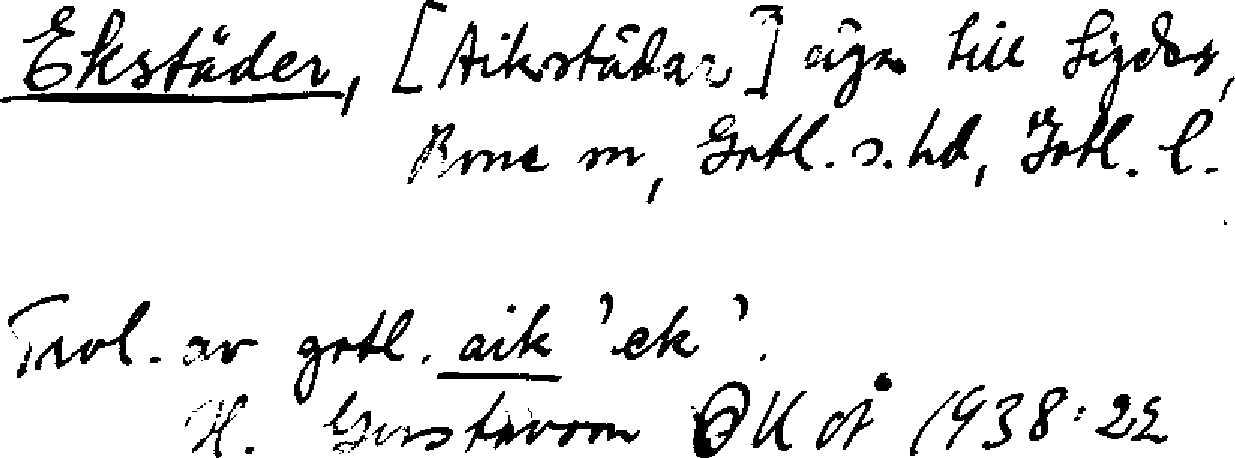 Ekstäder, [Aikstädar] äga till Sigdes,
Rone sn, Gotl. s. hd, Gotl. l.
Trol. av gotl. aik 'ek'.
H. Gustavson OKoÅ 1938:22